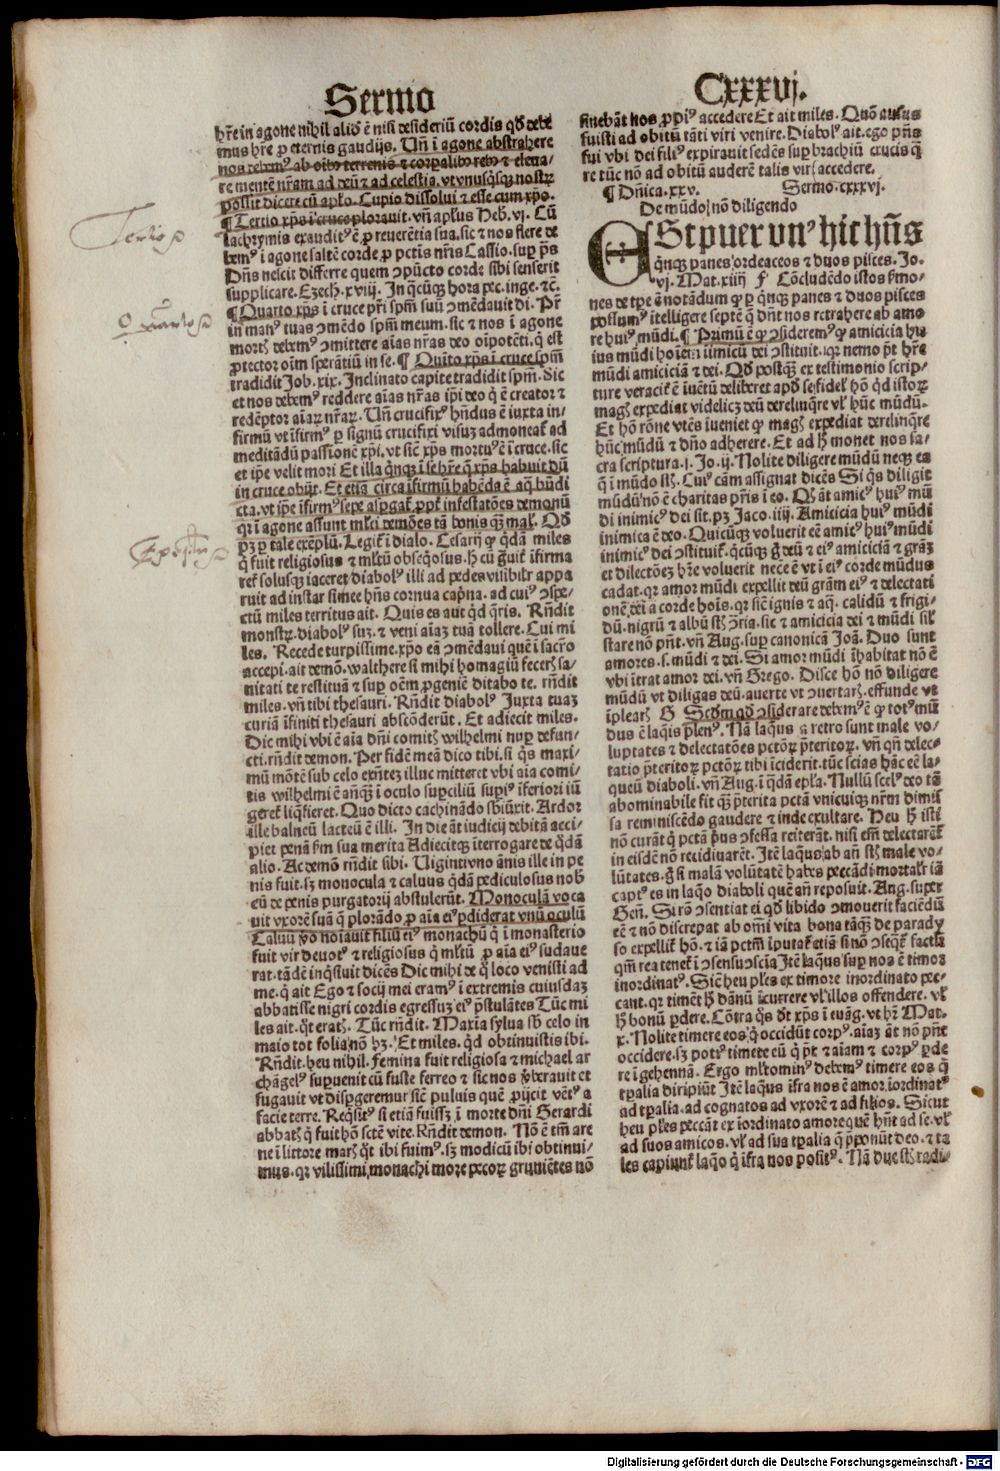 Sermo
Cxxxvj.
hr̄e in agone nihil aliḋ ē nisi desideriū cordis qḋ debe
mus hr̄e ꝓ eternis gaudijs. Un̄ ī agone abstrahere
nos debemꝰ ab oībꝰ terrenis ⁊ corꝑalibꝰ rebꝰ ⁊ eleua/
re mentē nr̄am ad deū ⁊ ad celestia. vt vnusq̄sqꝫ nostrꝝ
possit dicere cū apl̄o. Cupio dissolui ⁊ esse cum xp̄o.
¶ Tertio xp̄s ī cruce plorauit. vn̄ apl̄us Heb. vj. Cū
lachrymis exauditꝰ ē ꝓ reuerētia sua. sic ⁊ nos flere de
bemꝰ ī agone saltē corde ꝓ pctīs nr̄is Cassio. suꝑ ps̄
Dn̄s nescit differre quem ↄpūcto corde sibi senserit
supplicare. Ezech. xviij. In q̄cūqꝫ hora pec. inge. ⁊c̄.
¶ Quarto xp̄s ī cruce pr̄i sp̄m suū ↄmēdauit di. Pr̄
in manꝰ tuas ↄmēdo sp̄m meum. sic ⁊ nos ī agone
mortꝭ debemꝰ ↄmittere aīas nr̄as deo oīpotēti. q̄ est
ꝓtector oīm sperātiū in se. ¶ Quīto xp̄s ī cruce sp̄m
tradidit Joh. xix. Inclinato capite tradidit sp̄m. Sic
et nos debemꝰ reddere aīas nr̄as ip̄i deo q̄ ē creator ⁊
redēptor aīarꝝ nr̄arꝝ. Un̄ crucifixꝰ hn̄dus ē iuxta in/
firmū vt īfirmꝰ ꝑ signū crucifixi visuꝫ admoneat̄ ad
meditādū passionē xp̄i. vt sic̄ xp̄s mortuꝰ ē ī cruce. sic
et ip̄e velit mori Et illa q̄nqꝫ ī se hr̄e q̄ xp̄s habuit dū
in cruce obijt. Et etiā circa īfirmū habēda ē aq̄ bn̄di
cta. vt ip̄e īfirmꝰ sepe aspgat̄ ꝓpt̄ infestatōes demonū
qꝛ ī agone assunt ml̄ti demōes tā bonis qꝫ mal̄. Qḋ
pꝫ ꝑ tale exēplū. Legit̄ ī dialo. Cesarij ꝙ q̄dā miles
q̄ fuit religiosus ⁊ ml̄tū obseq̄osus. h̄ cū ḡuit̄ īfirma
ret̄ solusqꝫ iaceret diabolꝰ illi ad pedes visibilr̄ appa
ruit ad instar simee hn̄s cornua capn̄a. ad cuiꝰ ↄspe/
ctū miles territus ait. Quis es aut qḋ q̄ris. Rn̄dit
monstrꝝ. diabolꝰ suꝫ. ⁊ veni aīaꝫ tuā tollere. Cui mi
les. Recede turpissime. xp̄o eā ↄmēdaui quē ī sacro
accepi. ait demō. walthere si mihi homagiū fecerꝭ sa/
nitati te restituā ⁊ suꝑ oēm ꝓgeniē ditabo te. rn̄dit
miles. vn̄ tibi thesauri. Rn̄dit diabolꝰ Juxta tuaꝫ
curiā īfiniti thesauri abscōderūt. Et adiecit miles.
Dic mihi vbi ē aīa dn̄i comitꝭ wilhelmi nuꝑ defun/
cti. rn̄dit demon. Per fidē meā dico tibi. si q̄s maxi/
mū mōtē sub celo exn̄teꝫ illuc mitteret vbi aīa comi/
tis wilhelmi ē an̄qꝫ ī oculo suꝑciliū suꝑiꝰ īferiori iū
geret̄ liq̄fieret. Quo dicto cachināḋo sb̄iūxit. Ardor
ille balneū lacteū ē illi. In die āt iudicij debitā acci/
piet penā ẜm sua merita Adiecitqꝫ īterrogare de q̄dā
alio. Ac demō rn̄dit sibi. Uigintivno ānis ille in pe
nis fuit. sꝫ monocula ⁊ caluus q̄dā pediculosus nob̄
eū de penis purgatorij abstulerūt. Monoculā voca
uit vxorē suā q̄ plorādo ꝓ aīa eiꝰ ꝑdiderat vnū oculū
Caluū ꝟo noīauit filiū eiꝰ monachū q̄ ī monasterio
fuit vir deuotꝰ ⁊ religiosus q̄ ml̄tū ꝓ aīa eiꝰ sudaue
rat. tādē inq̄siuit dicēs Dic mihi de q̄ loco venisti ad
me. q̄ ait Ego ⁊ socij mei eramꝰ ī extremis cuiusdaꝫ
abbatisse nigri cordis egressuꝫ eiꝰ p̄stulātes Tūc mi
les ait. q̄t eratꝭ. Tūc rn̄dit. Maxīa sylua sb̄ celo in
maio tot folia nō hꝫ. Et miles. qḋ obtinuistis ibi.
Rn̄dit. heu nihil. femina fuit religiosa ⁊ michael ar
chāgelꝰ suꝑuenit cū fuste ferreo ⁊ sic nos ꝟberauit et
fugauit vt disꝑgeremur sic̄ puluis quē ꝓijcit vētꝰ a
facie terre. Req̄sitꝰ si etiā fuissꝫ ī morte dn̄i Gerardi
abbatꝭ q̄ fuit hō sctē vite. Rn̄dit demon. Nō ē tm̄ are
ne ī littore marꝭ q̄t ibi fuimꝰ. sꝫ modicū ibi obtinui/
mus. qꝛ vilissimi monachi more pecoꝝ gruniētes nō
sinebāt nos ꝓpiꝰ accedere Et ait miles. Quō ausus
fuisti ad obitū tāti viri venire. Diabolꝰ ait. ego pn̄s
fui vbi dei filiꝰ expirauit sedēs suꝑ brachiū crucis q̄
re tūc nō ad obitū auderē talis viri accedere.
¶ Dn̄ica. xxv. Sermo. cxxxvj.
De mūdo nō diligendo
ESt puer vnꝰ hic hn̄s
q̄nqꝫ panes ordeaceos ⁊ duos pisces. Jo.
vj. Mat. xiiij Cōcludēdo istos ẜmo/
nes de tꝑe ē notādum ꝙ ꝑ q̄nqꝫ panes ⁊ duos pisces
possumꝰ ītelligere septē q̄ dn̄t nos retrahere ab amo
re huiꝰ mūdi. ¶ Primū ē ꝙ ↄsideremꝰ ꝙ amicicia hu
ius mūdi hoīem inimicū dei ↄstituit. qꝛ nemo p̄t hr̄e
mūdi amiciciā ⁊ dei. Qḋ postqꝫ ex testimonio scrip/
ture veracit̄ ē īuētū deliberet apḋ se fidel̄ hō qḋ istoꝝ
magꝭ expediat videlicꝫ deū derelinq̄re vl̄ hūc mūdū.
Et hō rōne vtēs īueniet ꝙ magꝭ expediat derelinq̄re
hūc mūdū ⁊ dn̄o adherere. Et ad h̄ monet nos sa/
cra scriptura. j. Jo. ij. Nolite diligere mūdū neqꝫ ea
q̄ ī mūdo st̄. Cuiꝰ cām assignat dicēs Si q̄s diligit
mūdū nō ē charitas pr̄is ī eo. Qḋ āt amicꝰ huiꝰ mū
di inimicꝰ dei sit. pꝫ Jaco. iiij. Amicicia huiꝰ mūdi
inimica ē deo. Quicūqꝫ voluerit eē amicꝰ huiꝰ mūdi
inimicꝰ dei ↄstituit̄. q̄cūqꝫ g̊ deū ⁊ eiꝰ amiciciā ⁊ gr̄aꝫ
et dilectōeꝫ hr̄e voluerit nece ē vt ī eiꝰ corde mūdus
cadat. qꝛ amor mūdi expellit deū gr̄am eiꝰ ⁊ delectati
onē dei a corde hoīs. qꝛ sic̄ ignis ⁊ aq̄. calidū ⁊ frigi/
dū. nigrū ⁊ albū st̄ ↄ̄ria. sic ⁊ amicicia dei ⁊ mūdi sil̄
stare nō pn̄t. vn̄ Aug. suꝑ canonicā Joā. Duo sunt
amores. s. mūdi ⁊ dei. Si amor mūdi īhabitat nō ē
vbi ītrat amor dei. vn̄ Grego. Disce hō nō diligere
mūdū vt diligas deū. auerte vt ↄuertarꝭ. effunde vt
īplearꝭ Scḋm qḋ ↄsiderare debemꝰ ē ꝙ totꝰ mū
dus ē laq̄is plenꝰ. Nā laq̄us a retro sunt male vo/
luptates ⁊ delectatōes pctōꝝ p̄teritoꝝ. vn̄ qn̄ delec/
tatio p̄teritoꝝ pctōꝝ tibi īciderit. tūc scias hāc eē la/
queū diaboli. vn̄ Aug. ī q̄dā ep̄la. Nullū scelꝰ deo tā
abominabile fit qꝫ p̄terita pctā vnicuiqꝫ nr̄m dimis
sa reminiscēdo gaudere ⁊ inde exultare. Heu h̄ isti
nō curāt q̄ pctā pͥus ↄfessa reiterāt. nisi em̄ delectarēt̄
in eisdē nō recidiuarēt. Itē laq̄us ab an̄ st̄ male vo/
lūtates. g̊ si malā volūtatē habes peccādi mortalr̄ iā
captꝰ es in laq̄o diaboli quē an̄ reposuit. Aug. super
Gen̄. Si rō ↄsentiat ei qḋ libido ↄmouerit faciēdū
eē ⁊ nō discrepat ab om̄i vita bona tāqꝫ de parady
so expellit̄ hō. ⁊ iā pctm̄ īputat̄ etiā si nō ↄseq̄t̄ factū
qm̄ rea tenet̄ ī ↄsensu ↄscīa Itē laq̄us suꝑ nos ē timor
inordinatꝰ. Sic̄ heu pl̄es ex timore inordinato pec/
cant. qꝛ timēt h̄ dānū īcurrere vl̄ illos offendere. vl̄
h̄ bonū ꝑdere. Cōtra q̄s dt̄ xp̄s ī euāg. vt hr̄ Mat.
x. Nolite timere eos q̄ occidūt corpꝰ. aīaꝫ āt nō pn̄t
occidere. sꝫ potiꝰ timete eū q̄ p̄t ⁊ aīam ⁊ corpꝰ ꝑde
re ī gehennā. Ergo ml̄tominꝰ debemꝰ timere eos q̄
tp̄alia diripiūt Itē laq̄us īfra nos ē amor īordinatꝰ
ad tp̄alia. ad cognatos ad vxorē ⁊ ad filios. Sicut
heu pl̄es peccāt ex īordinato amore quē hn̄t ad se. vl̄
ad suos amicos. vl̄ ad sua tp̄alia q̄ p̄ponūt deo. ⁊ ta
les capiunt̄ laq̄o q̄ īfra nos positꝰ. Nā due st̄ radi/
Tertio
Quarto
Digitalisierung gefördert durch die Deutsche Forschungsgemeinschaft - DFG